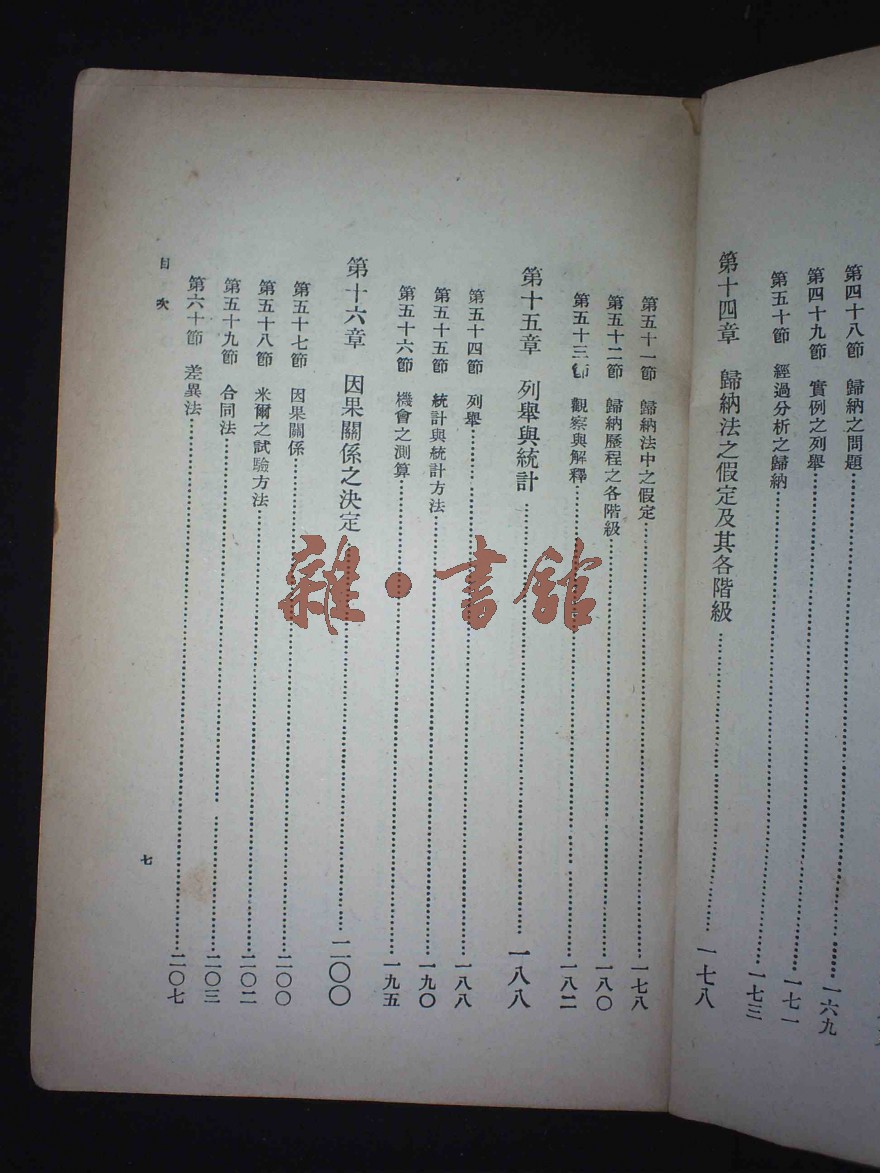 第四十八節 歸納之問題……一六九
第四十九節 實例之列舉……一七一
第五十節 經過分析之歸納……一七三
第十四章 歸納法之假定及其各階級……一七八
第五十一節 歸納法中之假定……一七八
第五十二節 歸納歷程之各階級……一八〇
第五十三節 觀察與解釋……一八二
第十五章 列舉與統計……一八八
第五十四節 列舉……一八八
第五十五節 統計與統計方法……一九〇
第五十六節 機會之測算……一九五
第十六章 因果關係之決定……二〇〇
第五十七節 因果關係……二〇〇
第五十八節 米爾之試驗方法……二〇二
第五十九節 合同法……二〇三
第六十節 差異法……二〇七
目次
七
雜·書館